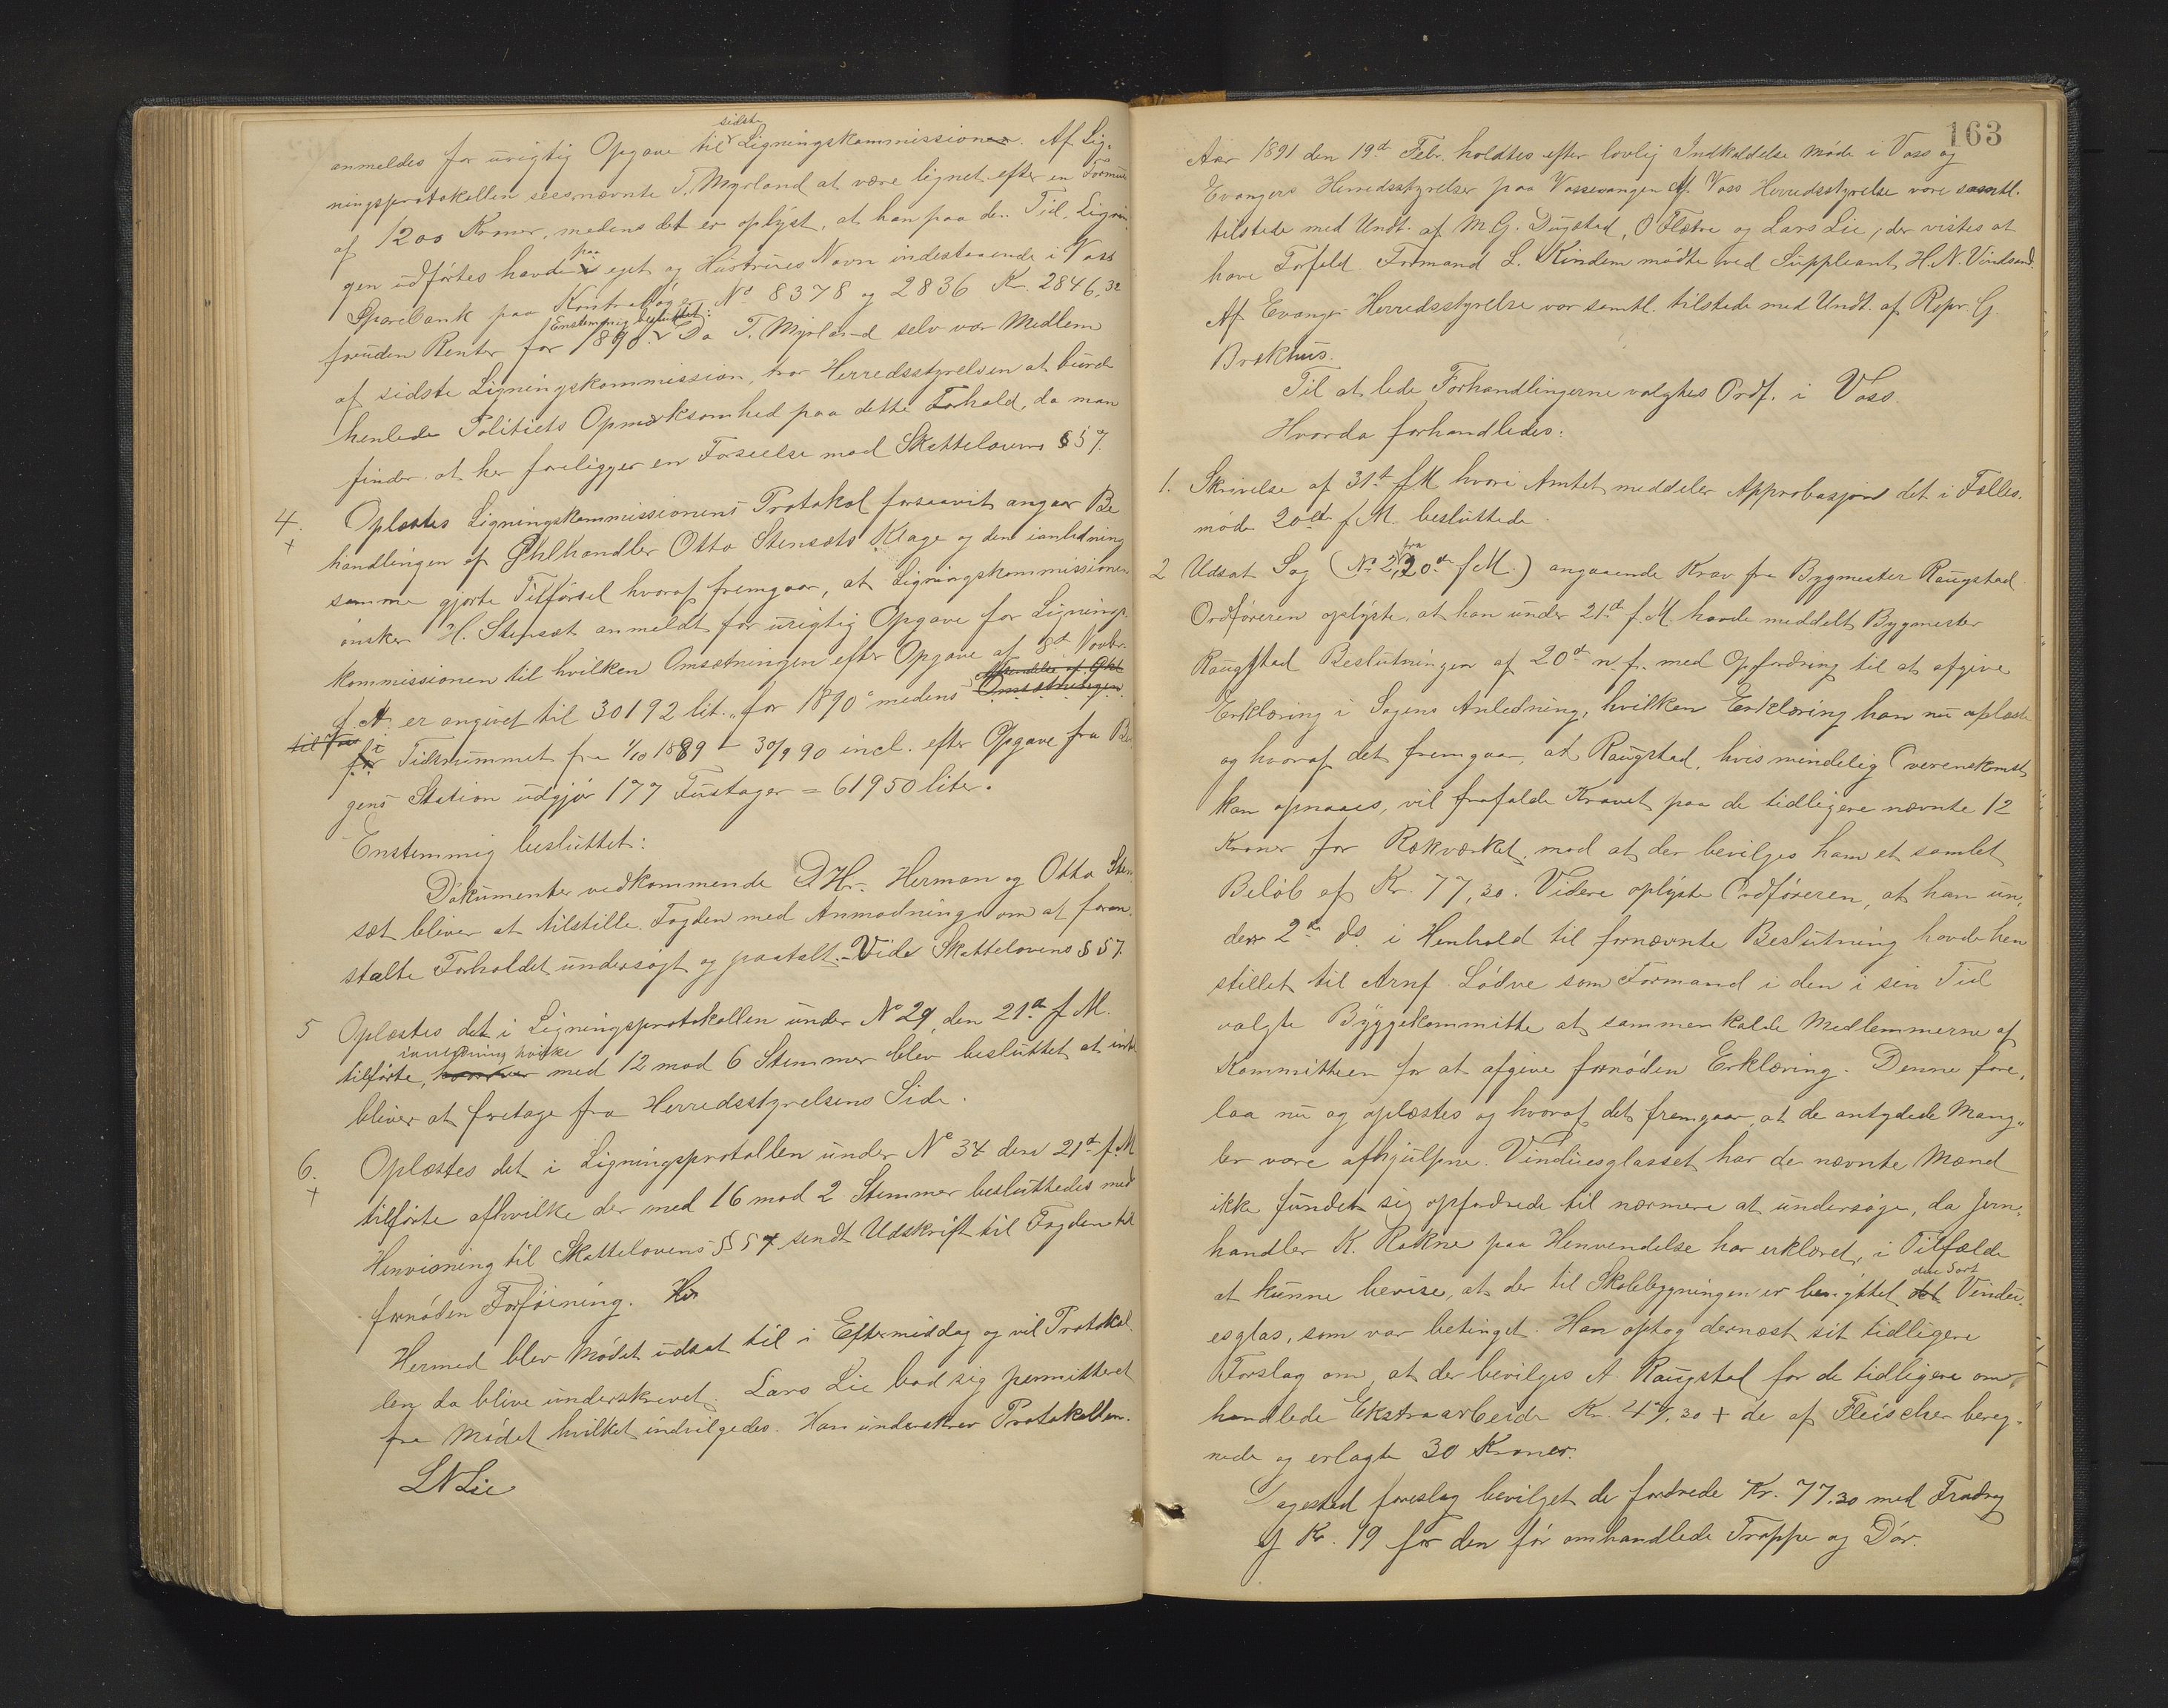 anmeldes for urigtig Opgave til sidste Ligningskommissionen. Af Lig-
ningsprotokollen sees nævnte T. Myrland at være lignet efter en Formue
af 1200 Kroner, medens det er oplyst, at han paa den Tid, Lignin-
gen udførtes havde paa eget og Hustrues Navn indestaaende i Voss
Sparebank paa Kontrabøger No 8378 og 2836 Kr. 2846,32
foruden Renter for 1890. Enstemmig besluttet: Da T. Myrland selv var Medlem
af sidste Ligningskommission, tror Herredsstyrelsen at burde
henlede Politiets Opmærksomhed paa dette Forhold, da man
finder at her foreligger en Forseelse mod Skattelovens § 57.
4. Oplæstes Ligningskommissionens Protokol forsaavit angaar Be
handlingen af Ølhandler Otto Stensæts Klage og den i anledning
samme gjorte Tilførsel hvoraf fremgaar, at Ligningskommissionen
ønsker H. Stensæt anmeldt for urigtig Opgave for Lignings-
kommissionen til hvilken Omsætningen efter Opgave af 8d Novbr.
f. A. er angivet til 30192 lit. for 1890 medens Afsendelse af Øhl Omsætningen
til Voss for i Tidsrummet fra 1/10 1889 – 30/9 90 incl. efter Opgave fra Ber
gens Station udgjør 177 Fustager = 61950 liter.
Enstemmig besluttet:
Dokumenter vedkommende DHr. Herman og Otto Sten
sæt bliver at tilstille Fogden med Anmodning om at foran-
stalte Forholdet undersøgt og paatalt. – Vide Skattelovens § 57.
5 Oplæstes det i Ligningsprotokollen under No 29, den 21de f. M.
tilførte, ianledning hvilke med 12 mod 6 Stemmer blev besluttet at intet
bliver at foretage fra Herredsstyrelsens Side.
6. Oplæstes det i Ligningsprotollen under No 34 den 21d f. M
tilførte afhvilke der med 16 mod 2 Stemmer besluttedes med
Henvisning til Skattelovens §57 sendt Udskrift til Fogden til
fornøden Forføining. Her
Hermed blev Mødet udsat til i Eftermiddag og vil Protokol-
len da blive underskrevet. Lars Lie bad sig permitteret
fra Mødet hvilket indvilgedes. Han underskrev Protokollen.
LN Lie
163
Aar 1891 den 19d Febr. holdtes efter lovlig Indkaldelse Møde i Voss og
Evangers Herredsstyrelser paa Vossevangen. Af Voss Herredsstyrelse vare samtl.
tilstede med Undt. af M G. Dugstad, O Flatre og Lars Lie, der vistes at
have Forfald. Formand L. Kindem mødte ved Suppleant H. N. Vindsand.
Af Evanger Herredsstyrelse var samtl. tilstede med Undt. af Repr. G.
Brækhus.
Til at lede Forhandlingerne valgtes Ordf. i Voss.
Hvorda forhandledes:
1. Skrivelse af 31d f M hvori Amtet meddeler Approbasjon det i Fælles-
møde 20de f. M. besluttede.
2 Udsat Sag (No 2, fra 20d f M.) angaaende Krav fra Bygmester Raugstad
Ordføreren oplyste, at han under 21d f. M. havde meddelt Bygmester
Raugstad Beslutningen af 20d n. f. med Opfordring til at afgive
Erklæring i Sagens Anledning, hvilken Erklæring han nu oplæste
og hvoraf det fremgaar, at Raugstad, hvis mindelig Overenskomst
kan opnaaes, vil frafalde Kravet paa de tidligere nævnte 12
Kroner for Rækværket, mod at der bevilges ham et samlet
Beløb af Kr. 77,30. Videre oplyste Ordføreren, at han un-
der 2de ds. i Henhold til fornævnte Beslutning havde hen
stillet til Arnf. Lødve som Formand i den i sin Tid
valgte Byggekommitte at sammenkalde Medlemmerne af
Kommitteen for at afgive fornøden Erklæring. Denne fore-
laa nu og oplæstes og hvoraf det fremgaar, at de antydede Mang-
ler vare afhjulpne. Vinduesglasset har de nævnte Mænd
ikke fundet sig opfordrede til nærmere at undersøge, da Jern-
handler K. Rokne paa Henvendelse har erklæret, i Tilfælde
at kunne bevise, at der til Skolebygningen er benyttet det den Sort Vindu-
esglas, som var betinget. Han optog dernæst sit tidligere
Forslag om at der bevilges A. Raugstad for de tidligere om-
handlede Ekstraarbeide Kr. 47,30 + de af Fleischer bereg-
nede og erlagte 30 Kroner.
Dagestad foreslog bevilget de fordrede Kr. 77.30 med Fradrag
af Kr. 19 for den før omhandlede Trappe og Dør.